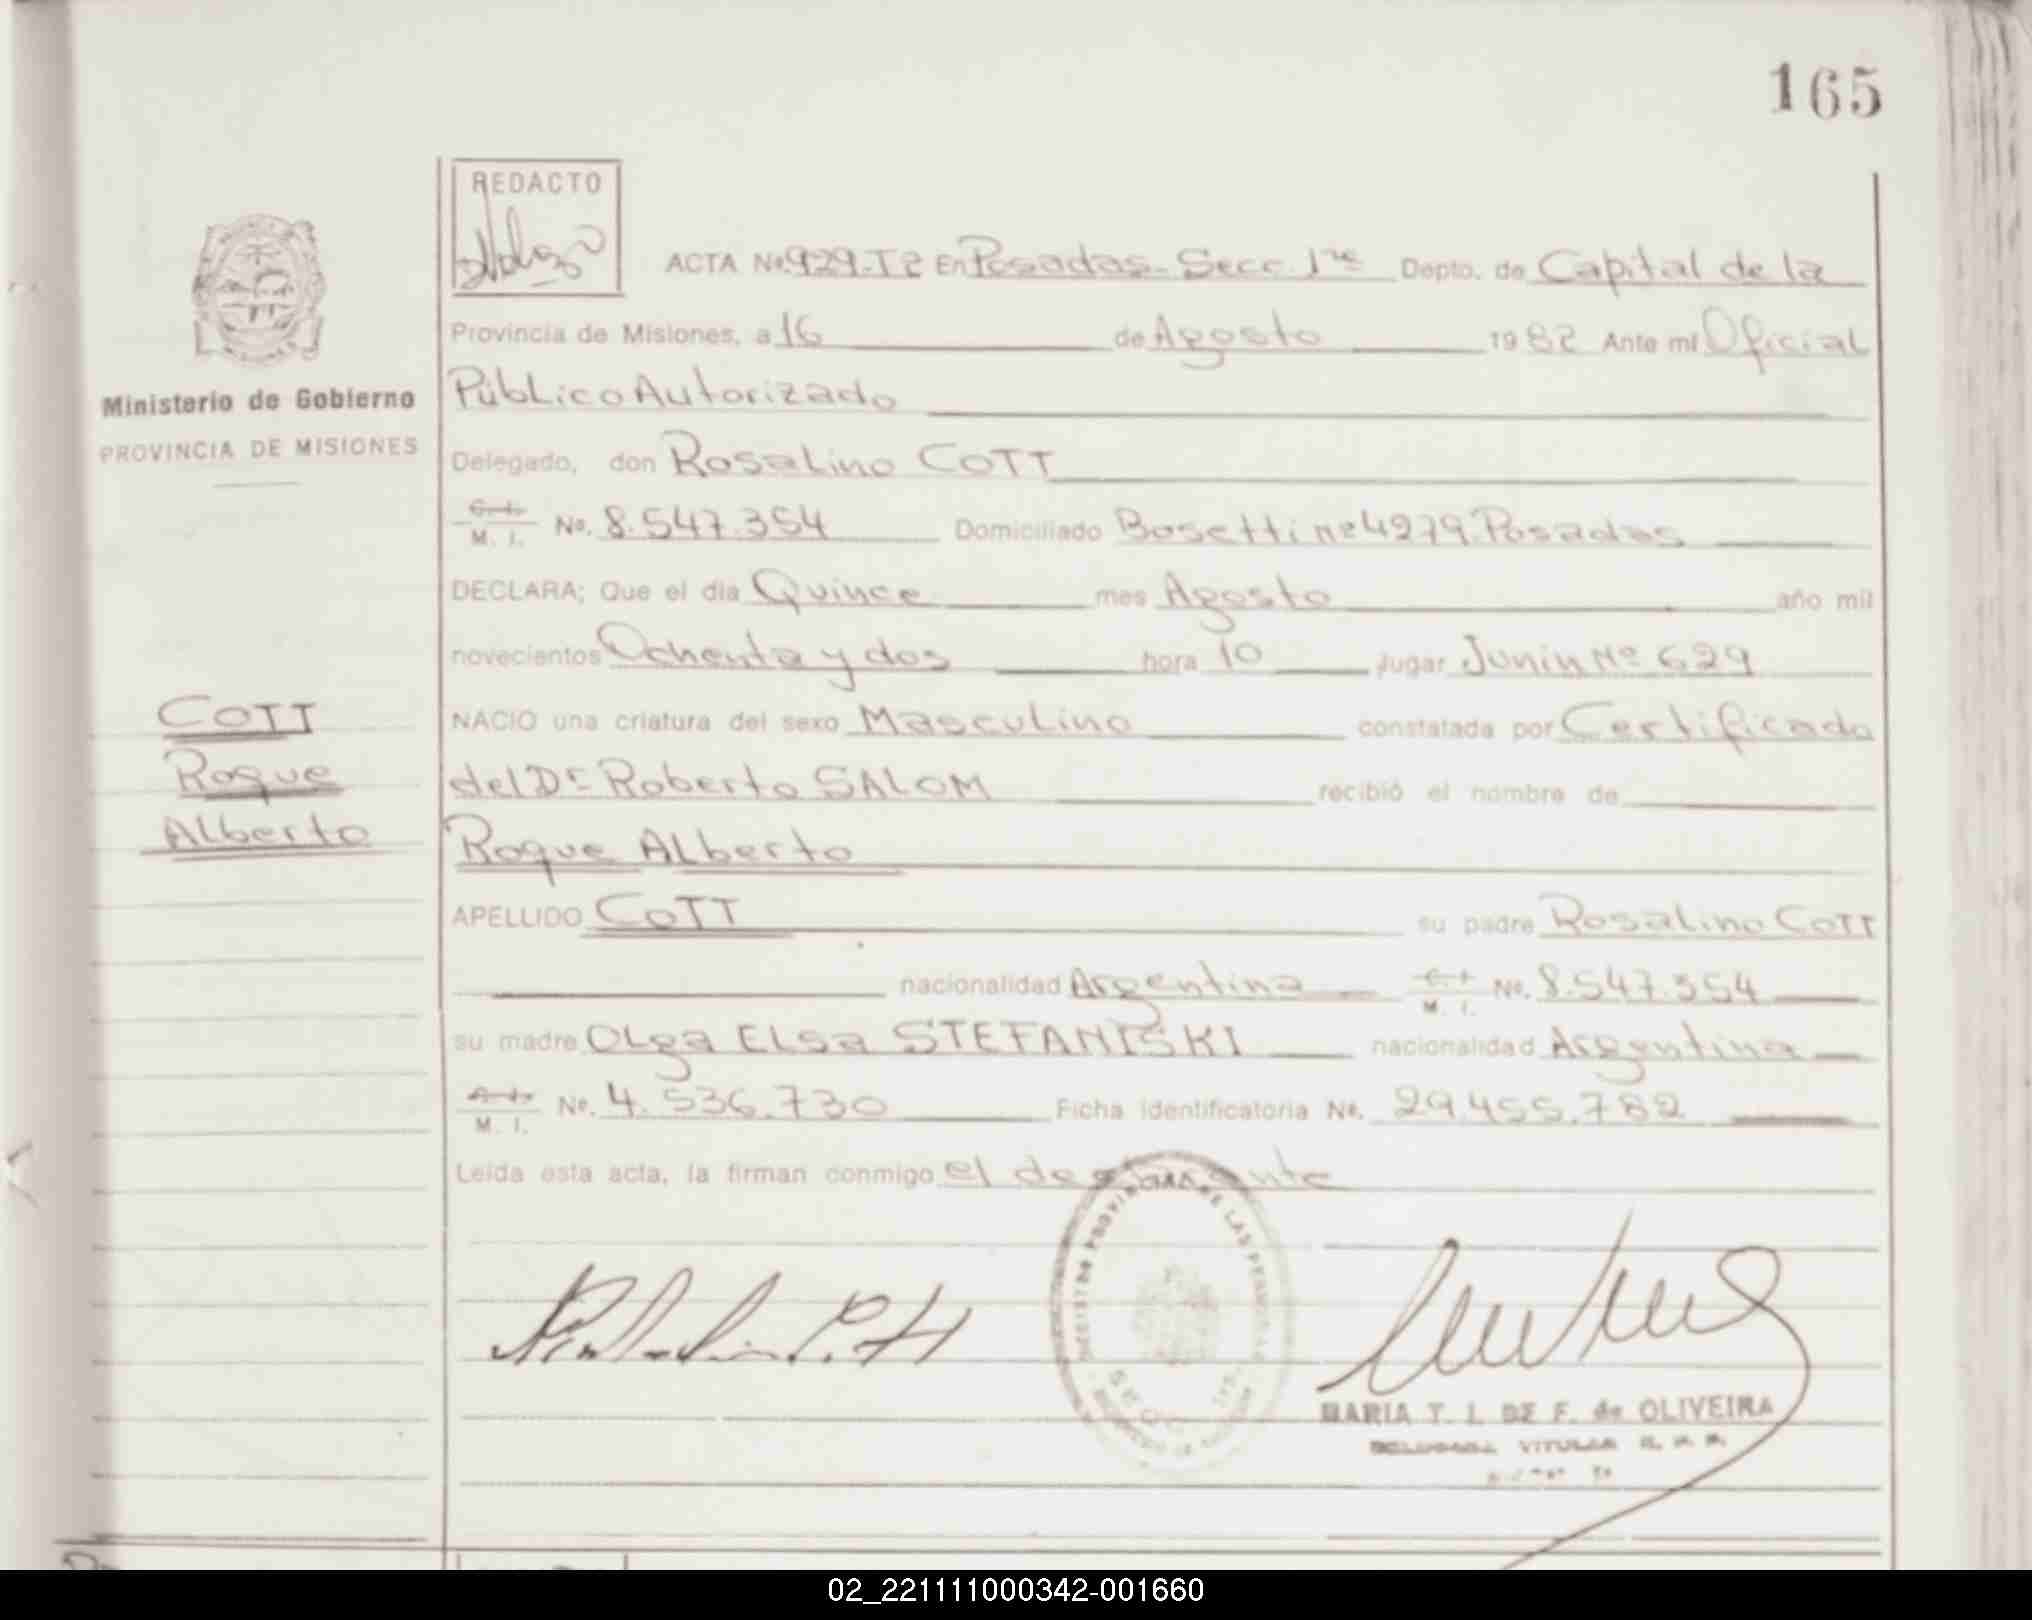 165
REDACTO
ACTA No. 929-T2 En Posadas-Secc. 1ra Depto. de Capital de la
Provincia de Misiones, a 16 de Agosto 1982 Ante mí Oficial
Público Autorizado
Ministerio de Gobierno
PROVINCIA DE MISIONES
Delegado, don Rosalino COTT
C. I. M. I. No. 8.547.354 Domiciliado Bosetti Nº 4279. Posadas
DECLARA; Que el día Quince mes Agosto año mil
novecientos Ochenta y dos hora 10 lugar Junín Nº 629
NACIO una criatura del sexo Masculino constatada por Certificado
del Dr Roberto SALOM recibió el nombre de
COTT
Roque
Alberto
Roque Alberto
APELLIDO COTT su padre Rosalino COTT
nacionalidad Argentina C. I. M. I. No. 8.547.354
su madre Olga Elsa STEFANISKI nacionalidad Argentina
M. I. No. 4.536.730 Ficha identificatoria No. 29.455.782
Leída esta acta, la firman conmigo el
MARIA T. I. DE F. de OLIVEIRA
02_221111000342-001660